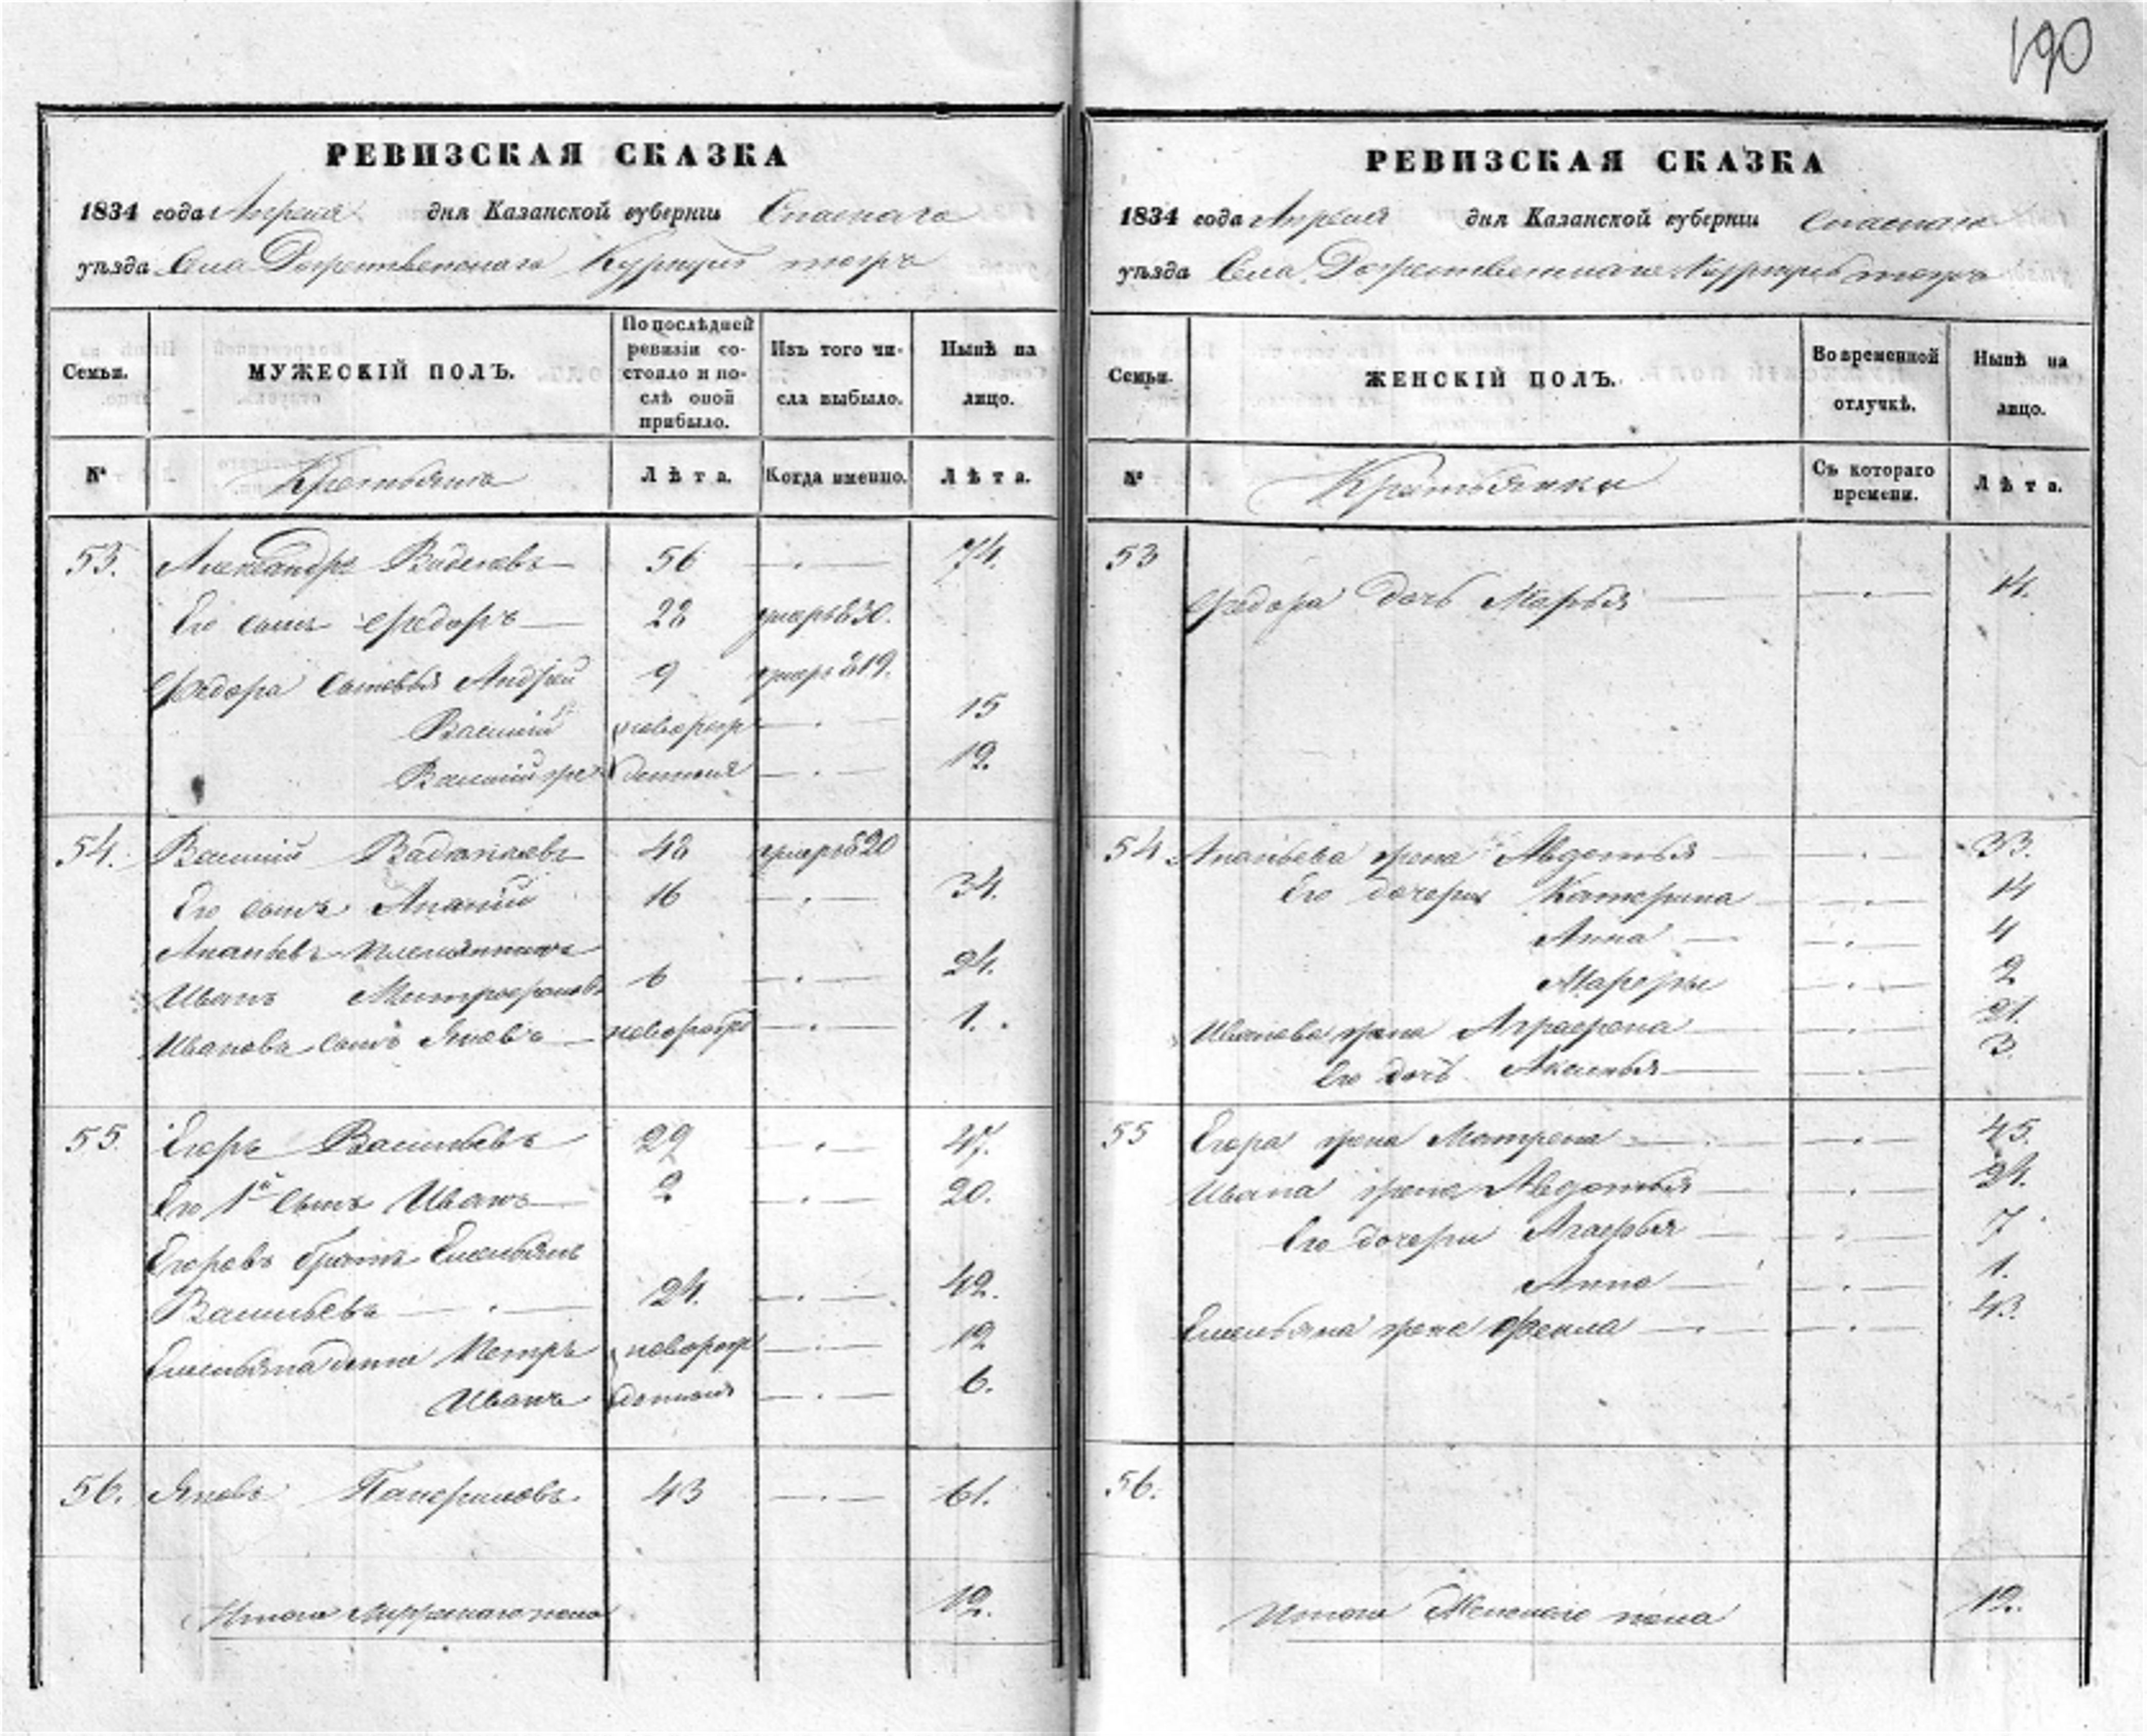 190
РЕВИЗСКАЯ СКАЗКА
1834 года Апреля дня Казанской губернiи Спаскаго
уѣзда Села Рожественскаго Куркуль тожъ
Семьи.
МУЖЕСКIЙ ПОЛЪ.
По послѣдней ревизiи со-
стояло и по-
слѣ оной
прибыло.
Изъ того чи-
сла выбыло.
Нынѣ на
лицо.
№
Крестьяне
Лѣта.
Когда именно.
Лѣта.
53. Александръ 56 74.
Его сынъ Федоръ 28 умеръ 830.
Федора сыновья Андрей 9 умеръ 819.
Василiй новорож 15
Василiй же денныя 12.
54. Василiй 48 умеръ 820
Его сынъ Ананiй 16 34.
Ананьевъ племянникъ
Иванъ Митрофановъ 6 24.
Иванова сынъ Яковъ новорож 1.
55. Егоръ Васильевъ 29 47.
Его 1й сынъ Иванъ 2 20.
Егоровъ братъ Емельянъ
Васильевъ 24. 42.
Емельяна дети Петръ новорож 12
Иванъ денныя 6.
56. Яковъ 43 61.
Итого Мужескаго пола 12.
РЕВИЗСКАЯ СКАЗКА
1834 года Апреля дня Казанской губернiи Спаскаго
уѣзда Села Рожественскаго Куркуль тожъ
Семьи.
ЖЕНСКIЙ ПОЛЪ.
Во временной
отлучкѣ.
Нынѣ на
лицо.
№
Крестьянки
Съ котораго
времени.
Лѣта.
53
Федора дочь Марья 14.
54 Ананьева жена Авдотья 33.
Его дочери Катерина 14
Анна 4
2
Иванова жена Аграфена 21.
Его дочь Аксинья 3.
55 Егора жена Матрена 45.
Ивана жена Авдотья 24.
Его дочери Агафья 7
Анна 1.
Емельяна жена Фекла 43.
56.
Итого Женскаго пола 12.